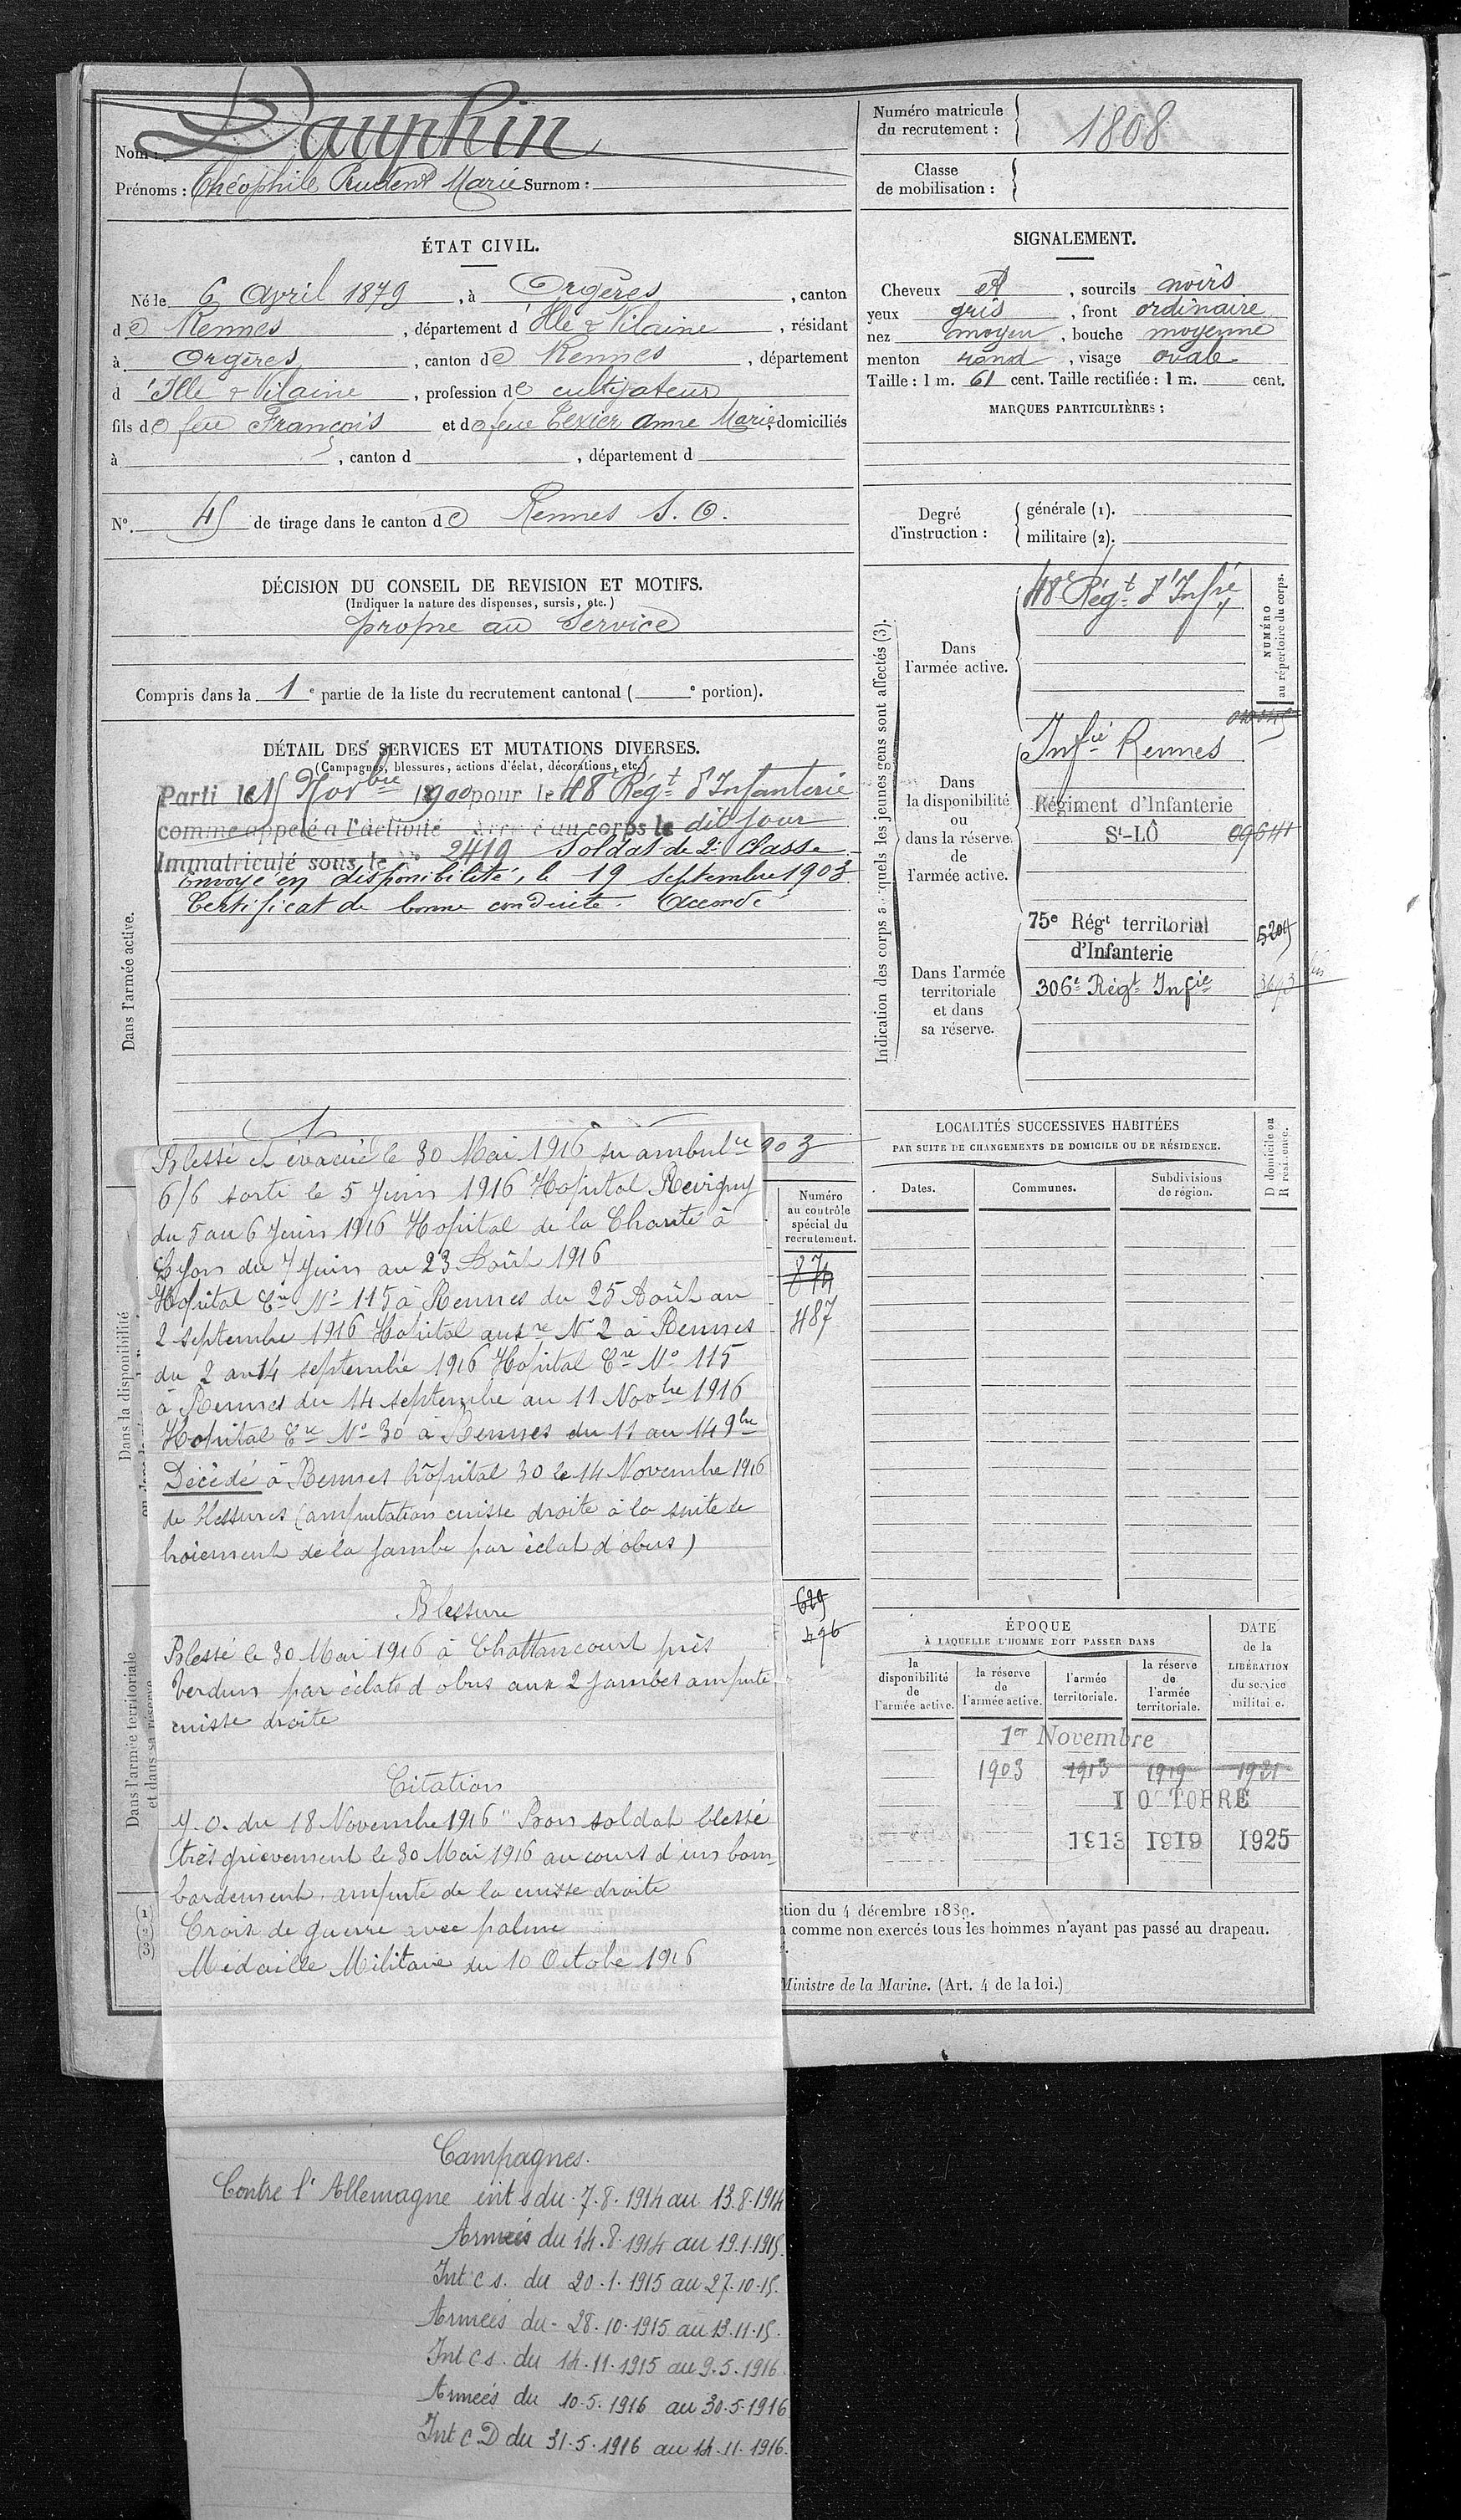 Nom : Dauphin
Prénoms : Théophile Prudent Marie Surnom :
Numéro matricule
du recrutement :
1808
Classe
de mobilisation :
ÉTAT CIVIL.
Né le 6 Avril 1879, à Orgères, canton
de Rennes, département d'Ille & Vilaine, résidant
à Orgères, canton de Rennes, département
d'Ille & Vilaine, profession de cultivateur
fils de feu François et de feue Texier Anne Marie, domiciliés
à , canton d , département d
N° 45 de tirage dans le canton de Rennes S. O.
DÉCISION DU CONSEIL DE REVISION ET MOTIFS.
(Indiquer la nature des dispenses, sursis, etc.)
propre au Service
Compris dans la 1e partie de la liste du recrutement cantonal ( e portion).
DÉTAIL DES SERVICES ET MUTATIONS DIVERSES.
(Campagnes, blessures, actions d'éclat, décorations, etc.)
Dans l'armée active.
Parti le 15 Novbre 1900 pour le 48e Régt d'Infanterie
comme appelé à l'activité Arrivé au corps le dit jour
Immatriculé sous le N° 2419 Soldat de 2e Classe
Envoyé en disponibilité, le 19 Septembre 1903
Certificat de bonne conduite. Accordé
903
Blessé et évacué le 30 Mai 1916 sur ambulce
6/6 sorti le 5 Juin 1916 Hopital Revigny
du 5 au 6 Juin 1916 Hopital de la Charité à
Lyon du 7 Juin au 23 Août 1916
Hopital Cre N° 115 à Rennes du 25 Août au
2 septembre 1916 Hopital auxre N° 2 à Rennes
du 2 au 14 septembre 1916 Hopital Cre N° 115
à Rennes du 14 septembre au 11 Novbre 1916
Hopital Cre N° 30 à Rennes du 11 au 14 9bre
Décédé à Rennes hôpital 30 le 14 Novembre 1916
de blessures (amputation cuisse droite à la suite de
broiement de la jambe par éclat d'obus)
Blessure
Blessé le 30 Mai 1916 à Chattancourt près
Verdun par éclats d'obus aux 2 jambes ampute
cuisse droite
Citation
J.O. du 18 Novembre 1916 " Bon soldat blessé
très grièvement le 30 Mai 1916 au cours d'un bom-
bardement. ampute de la cuisse droite
Croix de guerre avec palme
Médaille Militaire du 10 Octobe 1916
Campagnes.
Contre l'Allemagne int s du 7.8.1914 au 13.8.1914
Armées du 14.8.1914 au 19.1.1915.
Int c s. du 20.1.1915 au 27.10.15.
Armeés du 28.10.1915 au 13.11.15.
Int c s. du 14.11.1915 au 9.5.1916.
Armeés du 10.5.1916 au 30.5.1916
Int C D du 31.5.1916 au 14.11.1916.
Dans la disponibilité
Dans l'armée territoriale
et dans sa réserve
Numéro
au contrôle
spécial du
recrutement.
874
487
629
496
(1)
(2)
(3)
SIGNALEMENT.
Cheveux et, sourcils noirs
yeux gris, front ordinaire
nez moyen, bouche moyenne
menton rond, visage ovale
Taille : 1 m. 61 cent. Taille rectifiée : 1 m. cent.
MARQUES PARTICULIÈRES :
Degré
d'instruction :
générale (1).
militaire (2).
Indication des corps auxquels les jeunes gens sont affectés (3).
NUMÉRO
au répertoire du corps.
Dans
l'armée active.
48e Régt d'Infie
Dans
la disponibilité
ou
dans la réserve
de
l'armée active.
Infie Rennes
Régiment d'Infanterie
St-LÔ
09641
Dans l'armée
territoriale
et dans
sa réserve.
75e Régt territorial
d'Infanterie
5205
306e Régt Infie
LOCALITÉS SUCCESSIVES HABITÉES
PAR SUITE DE CHANGEMENTS DE DOMICILE OU DE RÉSIDENCE.
Dates.
Communes.
Subdivisions
de région.
D domicile ou
R résidence.
ÉPOQUE
À LAQUELLE L'HOMME DOIT PASSER DANS
la
disponibilité
de
l'armée active.
la réserve
de
l'armée active.
l'armée
territoriale.
la réserve
de
l'armée
territoriale.
DATE
de la
LIBÉRATION
du service
militaire.
1er Novembre
1903 1913 1919 1921
1 OCTOBRE
1913 1919 1925
ction du 4 décembre 1889.
a comme non exercés tous les hommes n'ayant pas passé au drapeau.
Ministre de la Marine. (Art. 4 de la loi.)